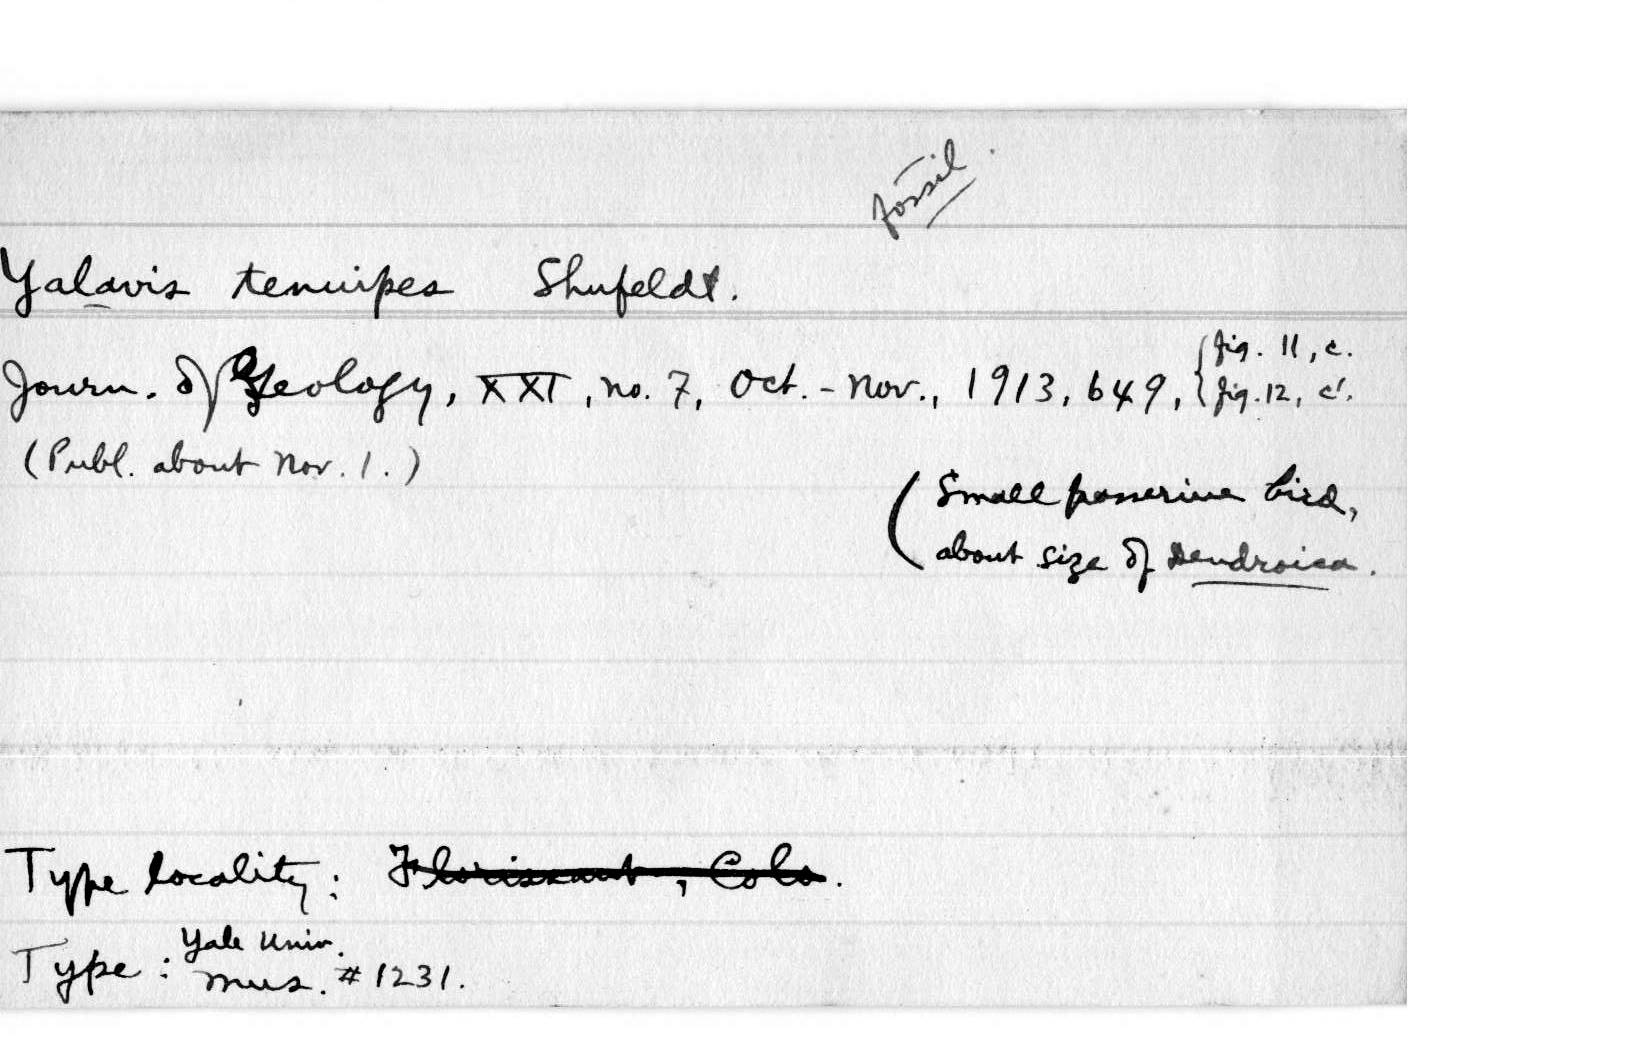 Fossil.
Yalavis tenuipes Shufeldt.
Journ. of Geology, XXI, no. 7, Oct.-Nov., 1913, 649, { fig. 11, c.
fig. 12, c'.
(Publ. about Nov. 1.)
(Small passerine bird,
about size of Dendroica.
Type locality: Florissant, Colo.
Type: Yale Univ.
Mus. #1231.